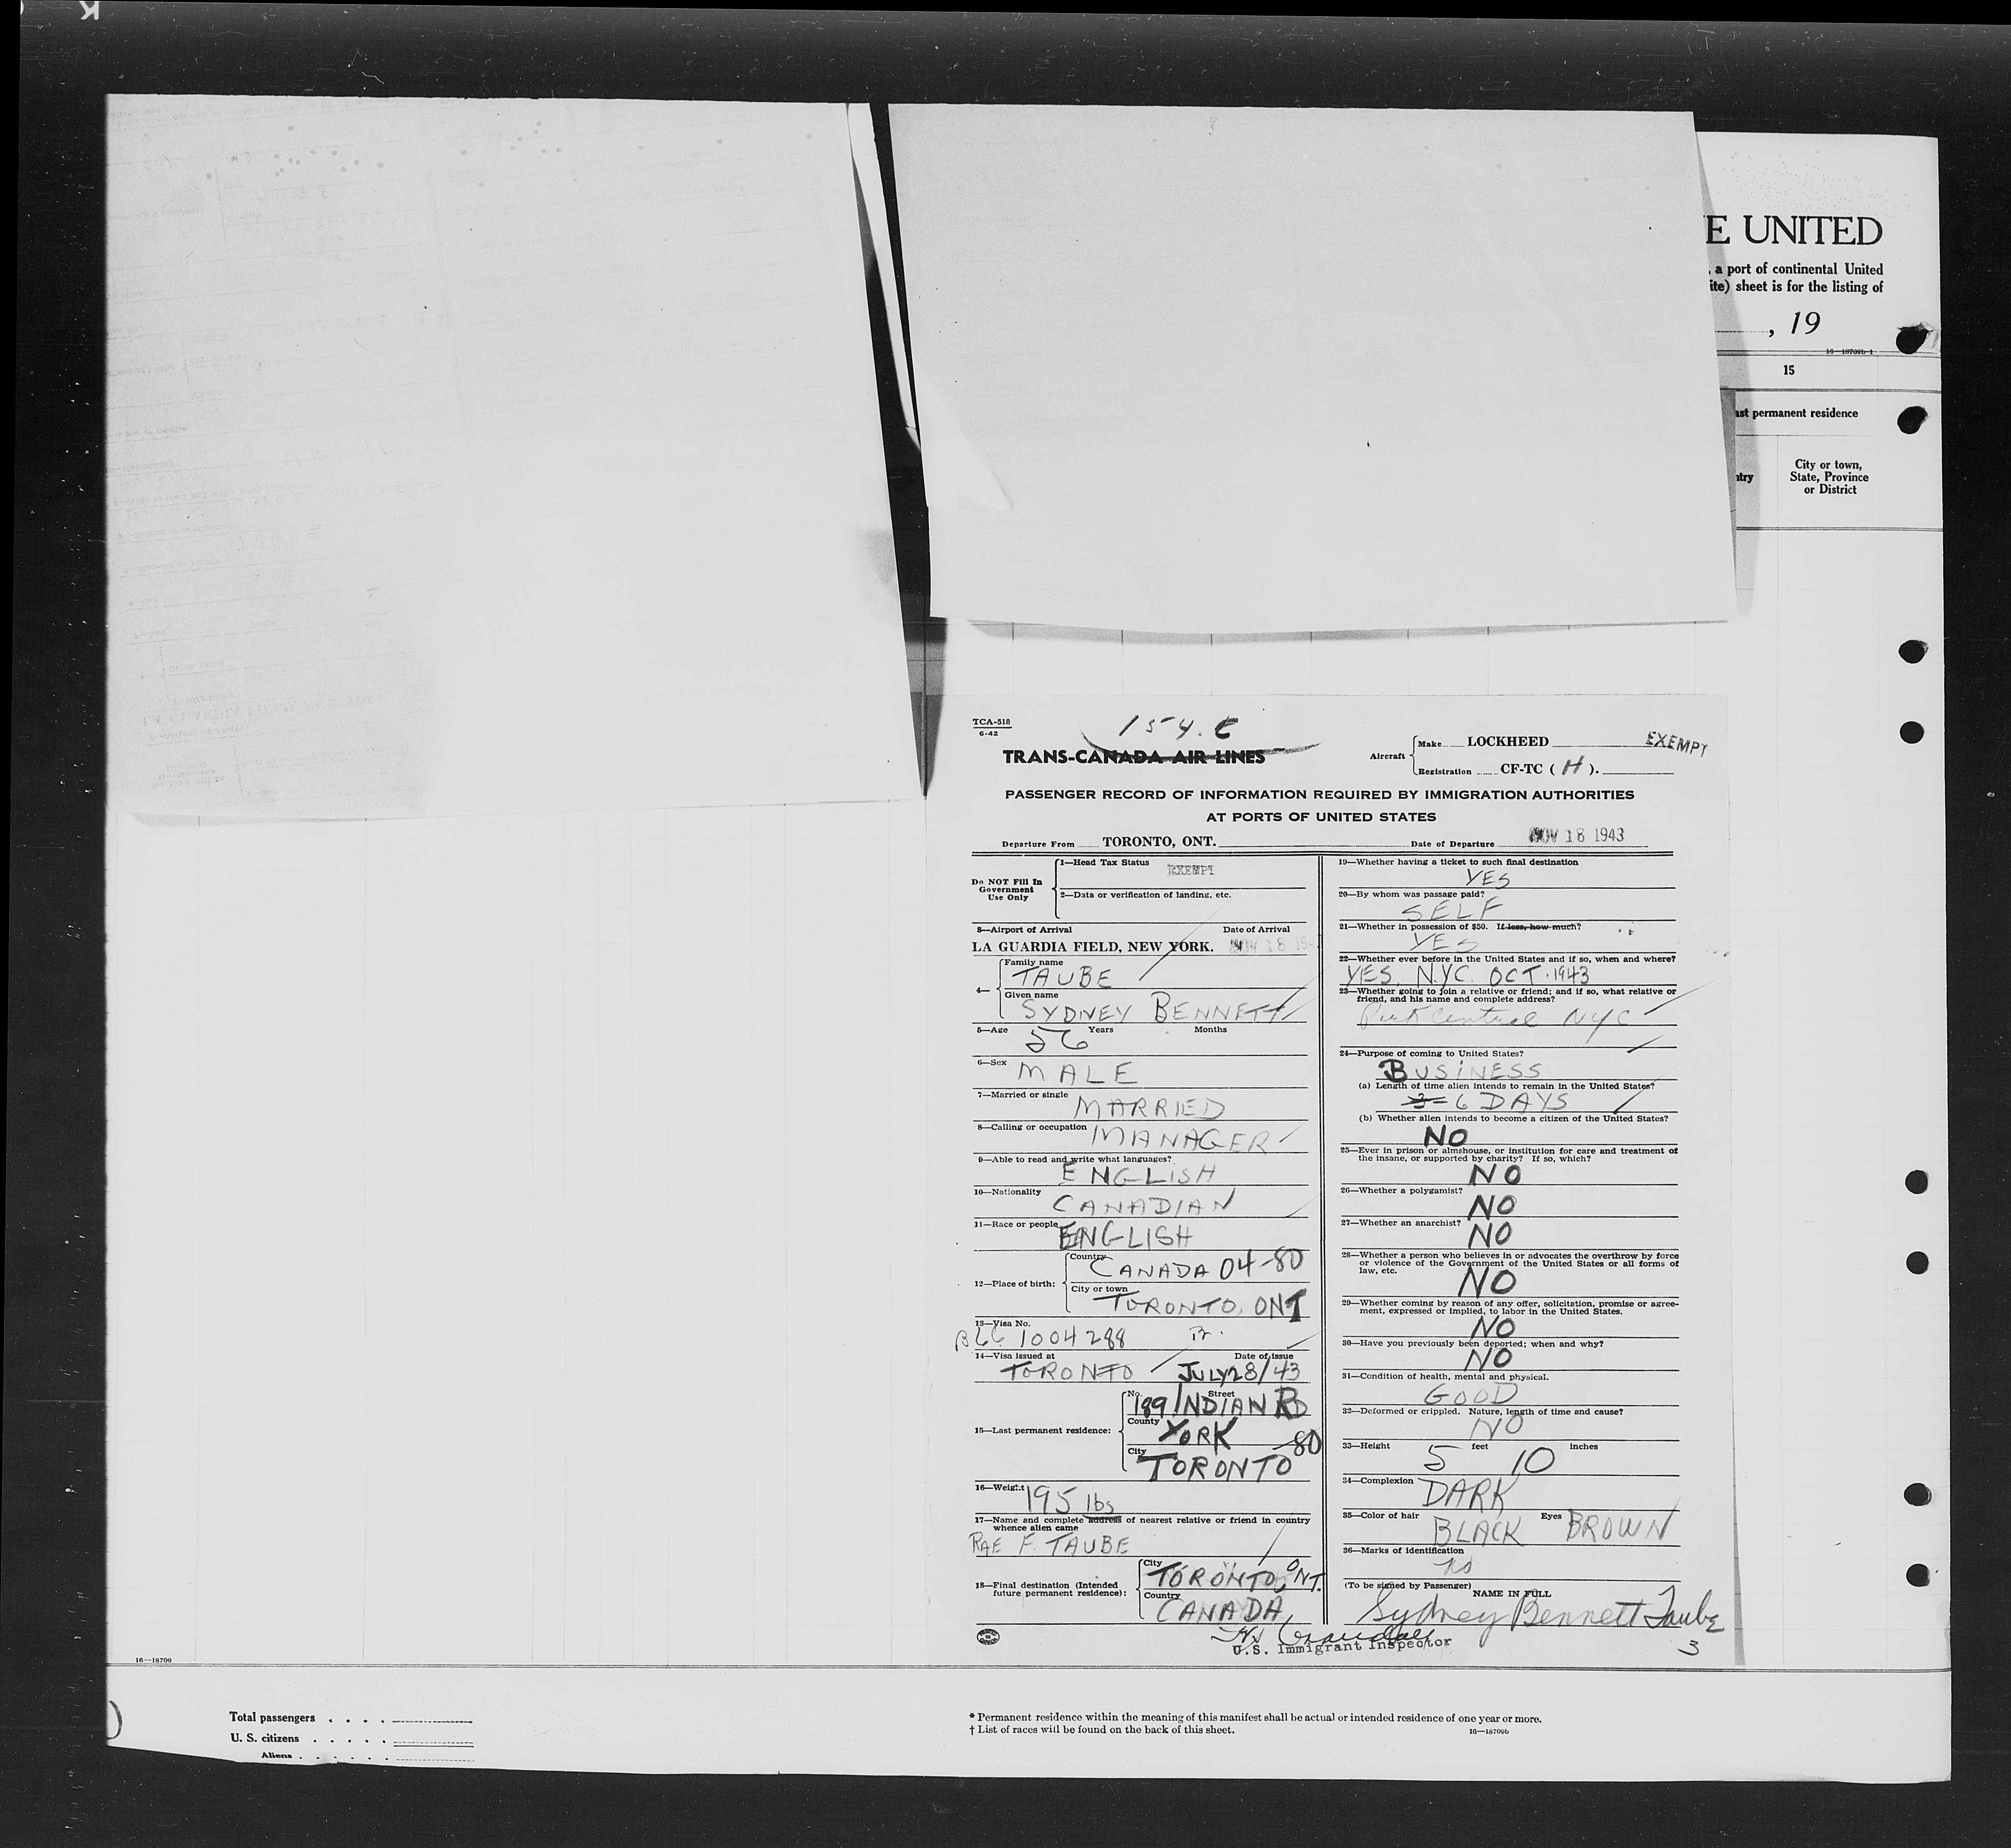 E UNITED
, a port of continental United
ite) sheet is for the listing of
, 19
16—18709b-1
15
ast permanent residence
ntry
City or town,
State, Province
or District
TCA-518
6-42
154.E
TRANS-CANADA AIR LINES
Aircraft
Make LOCKHEED
EXEMPT
Registration CF-TC ( H ).
PASSENGER RECORD OF INFORMATION REQUIRED BY IMMIGRATION AUTHORITIES
AT PORTS OF UNITED STATES
Departure From TORONTO, ONT.
Date of Departure NOV 18 1943
Do NOT Fill In
Government
Use Only
1—Head Tax Status EXEMPT
2—Data or verification of landing, etc.
3—Airport of Arrival Date of Arrival
LA GUARDIA FIELD, NEW YORK. NOV 18 194
4—
Family name
TAUBE
Given name
SYDNEY BENNETT
5—Age 56 Years Months
6—Sex
MALE
7—Married or single
MARRIED
8—Calling or occupation MANAGER
9—Able to read and write what languages?
ENGLISH
10—Nationality
CANADIAN
11—Race or people
ENGLISH
12—Place of birth:
Country
CANADA 04-80
City or town
TORONTO, ONT
13—Visa No.
1004288
14—Visa issued at Date of issue
TORONTO JULY 28/43
15—Last permanent residence:
No. Street
189 INDIAN RD
County
YORK 80
City
TORONTO
16—Weight 195 lbs
17—Name and complete address of nearest relative or friend in country
whence alien came
RAE F. TAUBE
18—Final destination (Intended
future permanent residence):
City
TORONTO, ONT.
Country
CANADA
19—Whether having a ticket to such final destination
YES
20—By whom was passage paid?
SELF
21—Whether in possession of $50. If less, how much?
YES
22—Whether ever before in the United States and if so, when and where?
YES, N.Y.C. OCT. 1943
23—Whether going to join a relative or friend; and if so, what relative or
friend, and his name and complete address?
Park Central NYC
24—Purpose of coming to United States?
BUSINESS
(a) Length of time alien intends to remain in the United States?
3- 6 DAYS
(b) Whether alien intends to become a citizen of the United States?
NO
25—Ever in prison or almshouse, or institution for care and treatment of
the insane, or supported by charity? If so, which?
NO
26—Whether a polygamist?
NO
27—Whether an anarchist?
NO
28—Whether a person who believes in or advocates the overthrow by force
or violence of the Government of the United States or all forms of
law, etc.
NO
29—Whether coming by reason of any offer, solicitation, promise or agree-
ment, expressed or implied, to labor in the United States.
NO
30—Have you previously been deported; when and why?
NO
31—Condition of health, mental and physical.
GOOD
32—Deformed or crippled. Nature, length of time and cause?
NO
33—Height 5 feet 10 inches
34—Complexion
DARK
35—Color of hair BLACK Eyes BROWN
36—Marks of identification
no
(To be signed by Passenger) NAME IN FULL
Sydney Bennett Taube
U.S. Immigrant Inspector
3
16—18709
Total passengers
U. S. citizens
Aliens
* Permanent residence within the meaning of this manifest shall be actual or intended residence of one year or more.
† List of races will be found on the back of this sheet.
16—18709b